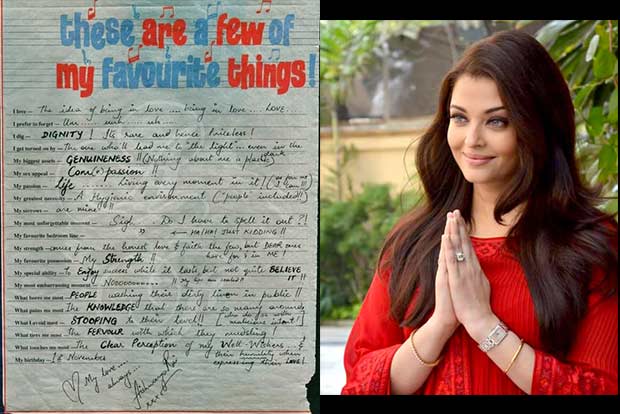 these are a few of
my favourite things!
I love - The idea of being in love .... being in love ... LOVE.
I prefer to forget - Um ... uuh ... uh ...
I dig - DIGNITY! Its rare and hence Priceless!
I get turned on by - The one who'll lead me to "the light" .. even in the dark
My biggest assets - GENUINENESS!! (Nothing about me is plastic)
My sex appeal - Com(+)passion!!
My passion - Life .... Living every moment in it! (as far as I can!!)
My greatest necessity - A Hygienic environment ("people included"!!)
My sorrows - are mine!!
My most unforgettable moment - Sigh .. Do I have to spell it out?!
My favourite bedroom line - " " ← HA!HA! JUST KIDDING!!
My strength - comes from the honest love & faith the few, but DEAR ones have for & in ME!
My favourite possession - My Strength!!
My special ability - to Enjoy success while it lasts but not quite BELIEVE IT!!
My most embarrassing moment - NOoooooo .... !! My lips are sealed!!
What bores me most - PEOPLE washing their dirty linen in public!!
What pains me most - the KNOWLEDGE that there are so many around who do so with malicious intent!
What I avoid most - STOOPING to their level!!
What tires me most - the FERVOUR with which they mudsling!
What touches me most - The Clear Perception of my Well-Wishers .. & their humility when expressing their LOVE!
My birthday - 1st November
My love ...
always ...
Aishwarya Rai
xxx